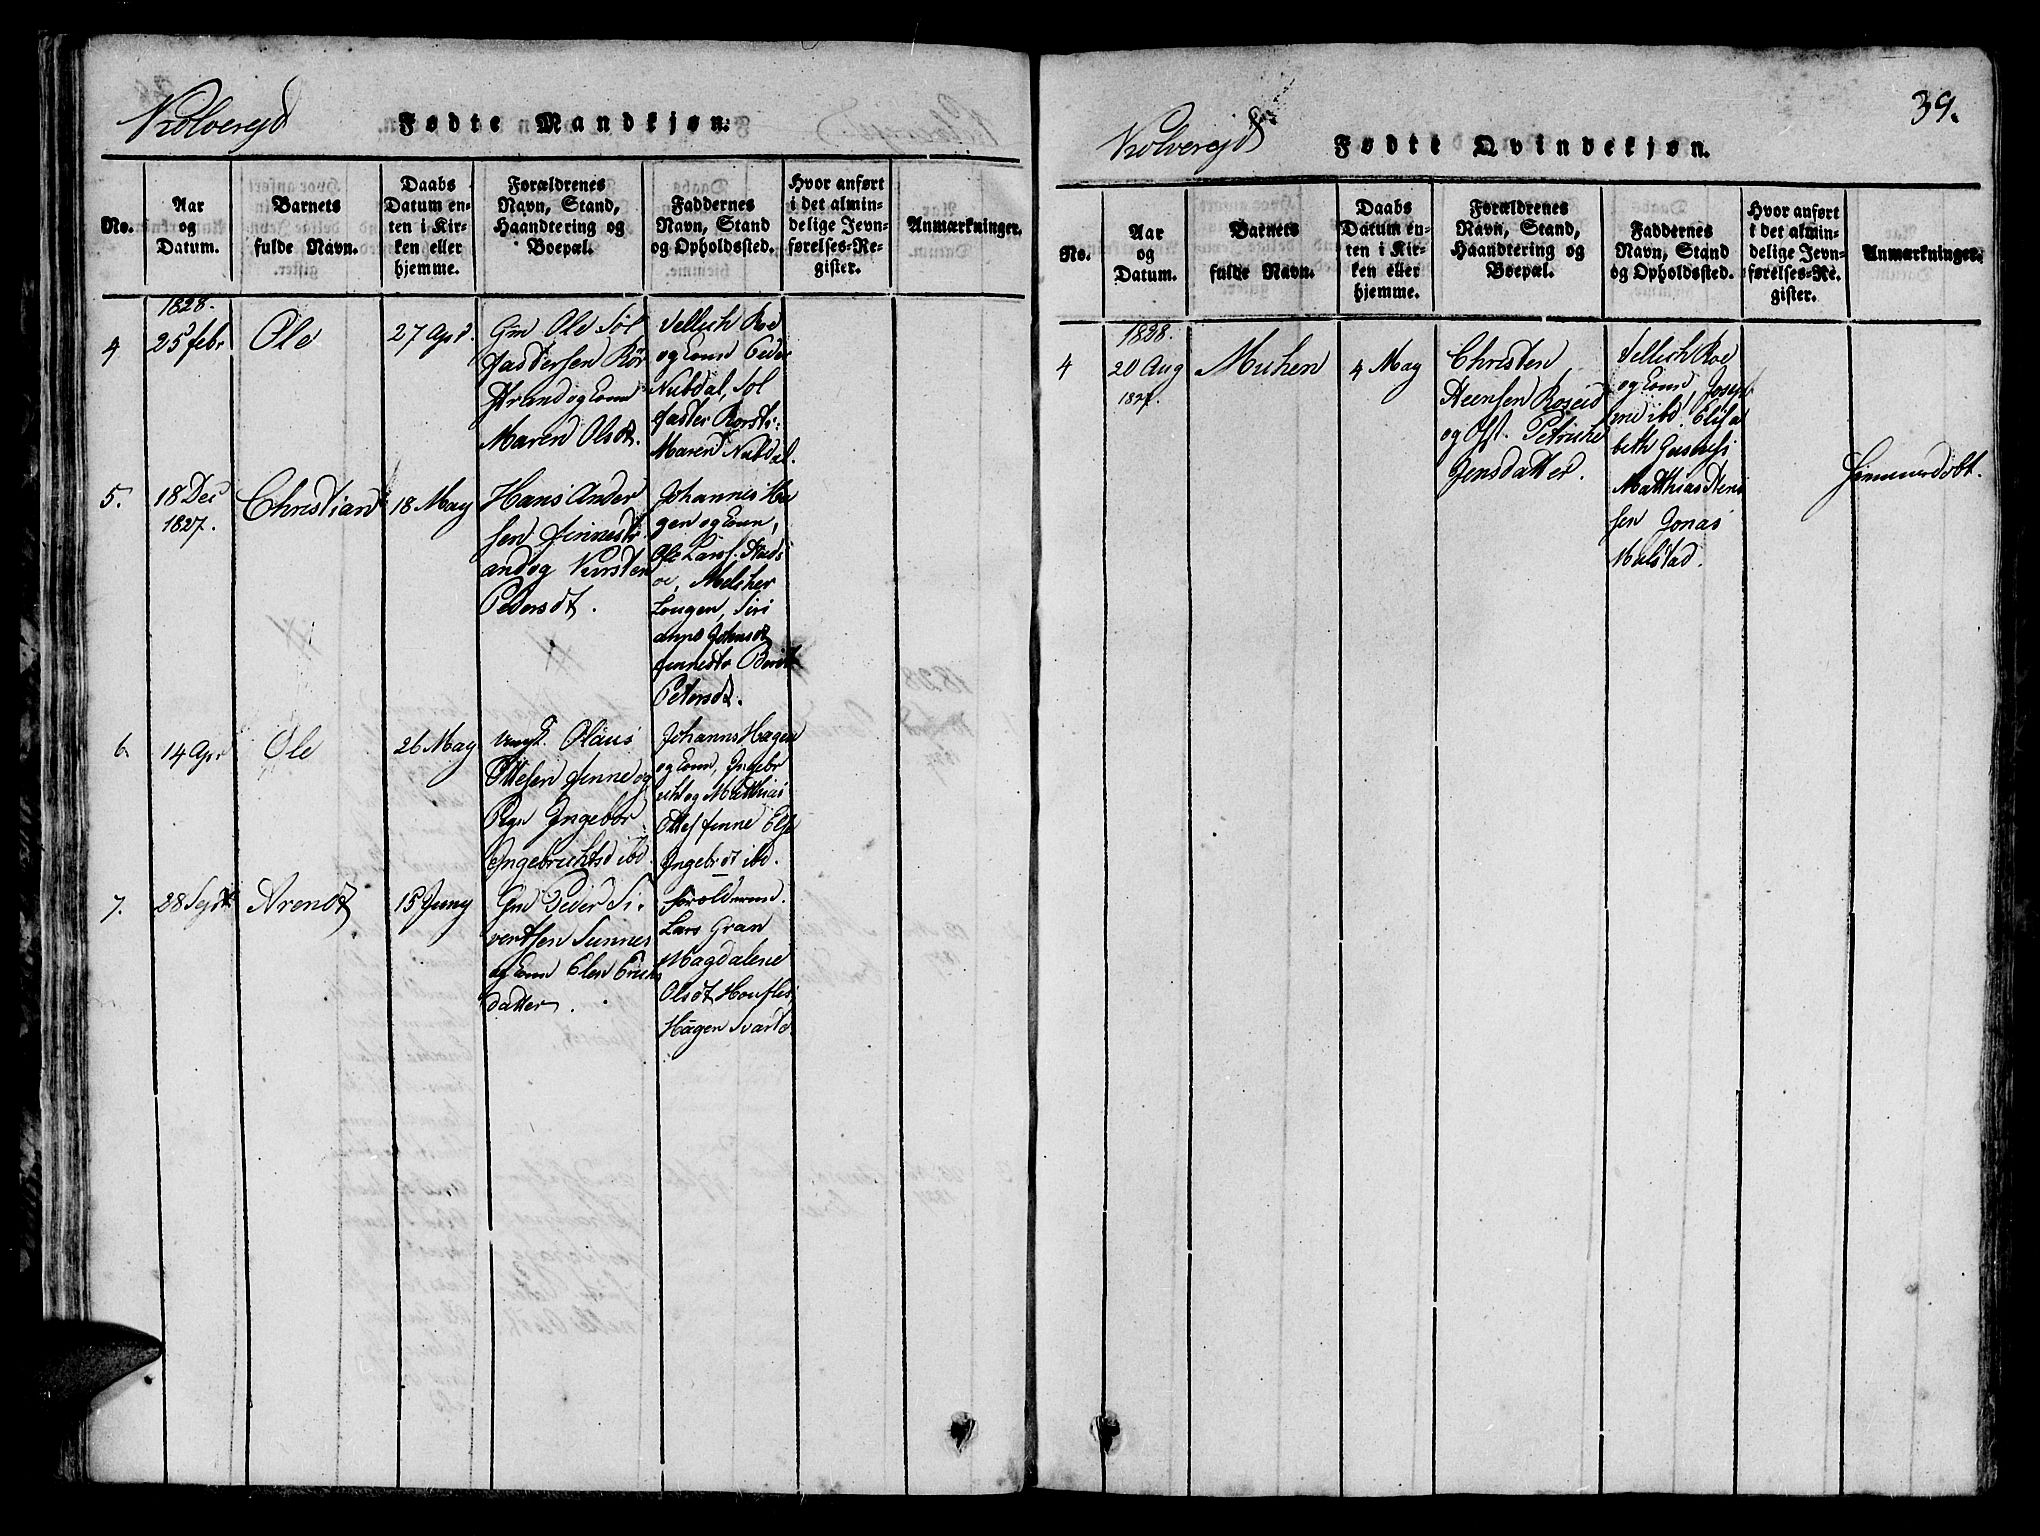 Kolvereyd
Fødte Mandkjøn.
No.
Aar
og
Datum.
Barnets
fulde Navn.
Daabs
Datum en-
ten i Kir-
ken eller
hjemme.
Forældrenes
Navn, Stand,
Haandtering og
Boepæl.
Faddernes
Navn, Stand
og Opholdssted.
Hvor anført
i det almin-
delige Jevn-
førelses-Re-
gister.
Anmærkninger.
1828.
4
25 febr
Ole
27 Apr.
Gm Ole Søl
fastersen Rør
strand og Konn
Maren Olsdt.
Vellich Roe
og Konn Peder
Nubdal, Søl
faster Rorstr.
Maren Nubdal.
5.
18 Dec
1827.
Christian
18 May
Hans Ander
sen Finnestr
and og Kirsten
Pedersdt.
Johannes Ha
gen og Konn,
Ole Lars.
Melcher
Lougen, Siri
anna Johnsdt
Finnestr Berit
Petersdt.
6.
14 Apr
Ole
26 May
Ungk. Olaus
Ottesen Finne og
Pige Ingebor
Ingebrichtsd ibd.
Johanns Hagen
og Konn, Ingebr
icht og Matthias
Ottes Finne Else
Ingebrdt ibd.
7.
28 Sept
Arendt
15 Juny
Gm Peder Si-
vertsen Sunnes
og Konn Elen Erichs
datter.
Forældrene.
Lars Gran
Magdalene
Olsdt Houfles
Hagen Svarte
39.
Kolvereyd
Fødte Qvindekjøn.
No.
Aar
og
Datum.
Barnets
fulde Navn.
Daabs
Datum en-
ten i Kir-
ken eller
hjemme.
Forældrenes
Navn, Stand,
Haandtering og
Boepæl.
Faddernes
Navn, Stand
og Opholdssted.
Hvor anført
i det almin-
delige Jevn-
førelses-Re-
gister.
Anmærkninger.
1828.
4
20 Aug
1827.
4 May
Christen
Steensen Roseid
og Hst. Petriche
Jensdatter.
Vellich Roe
og Konn, Josep
ine ibd. Elisa
beth
Matthias Steni
sen Jonas
Mulstad.
Hjemmedøbt.